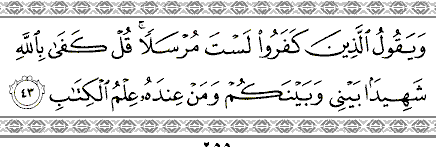 وَيَقُولُ ٱلَّذِينَ كَفَرُوا۟ لَسْتَ مُرْسَلًۭا ۚ قُلْ كَفَىٰ بِٱللَّهِ
شَهِيدًۢا بَيْنِى وَبَيْنَكُمْ وَمَنْ عِندَهُۥ عِلْمُ ٱلْكِتَـٰبِ ٤٣
٢٥٥